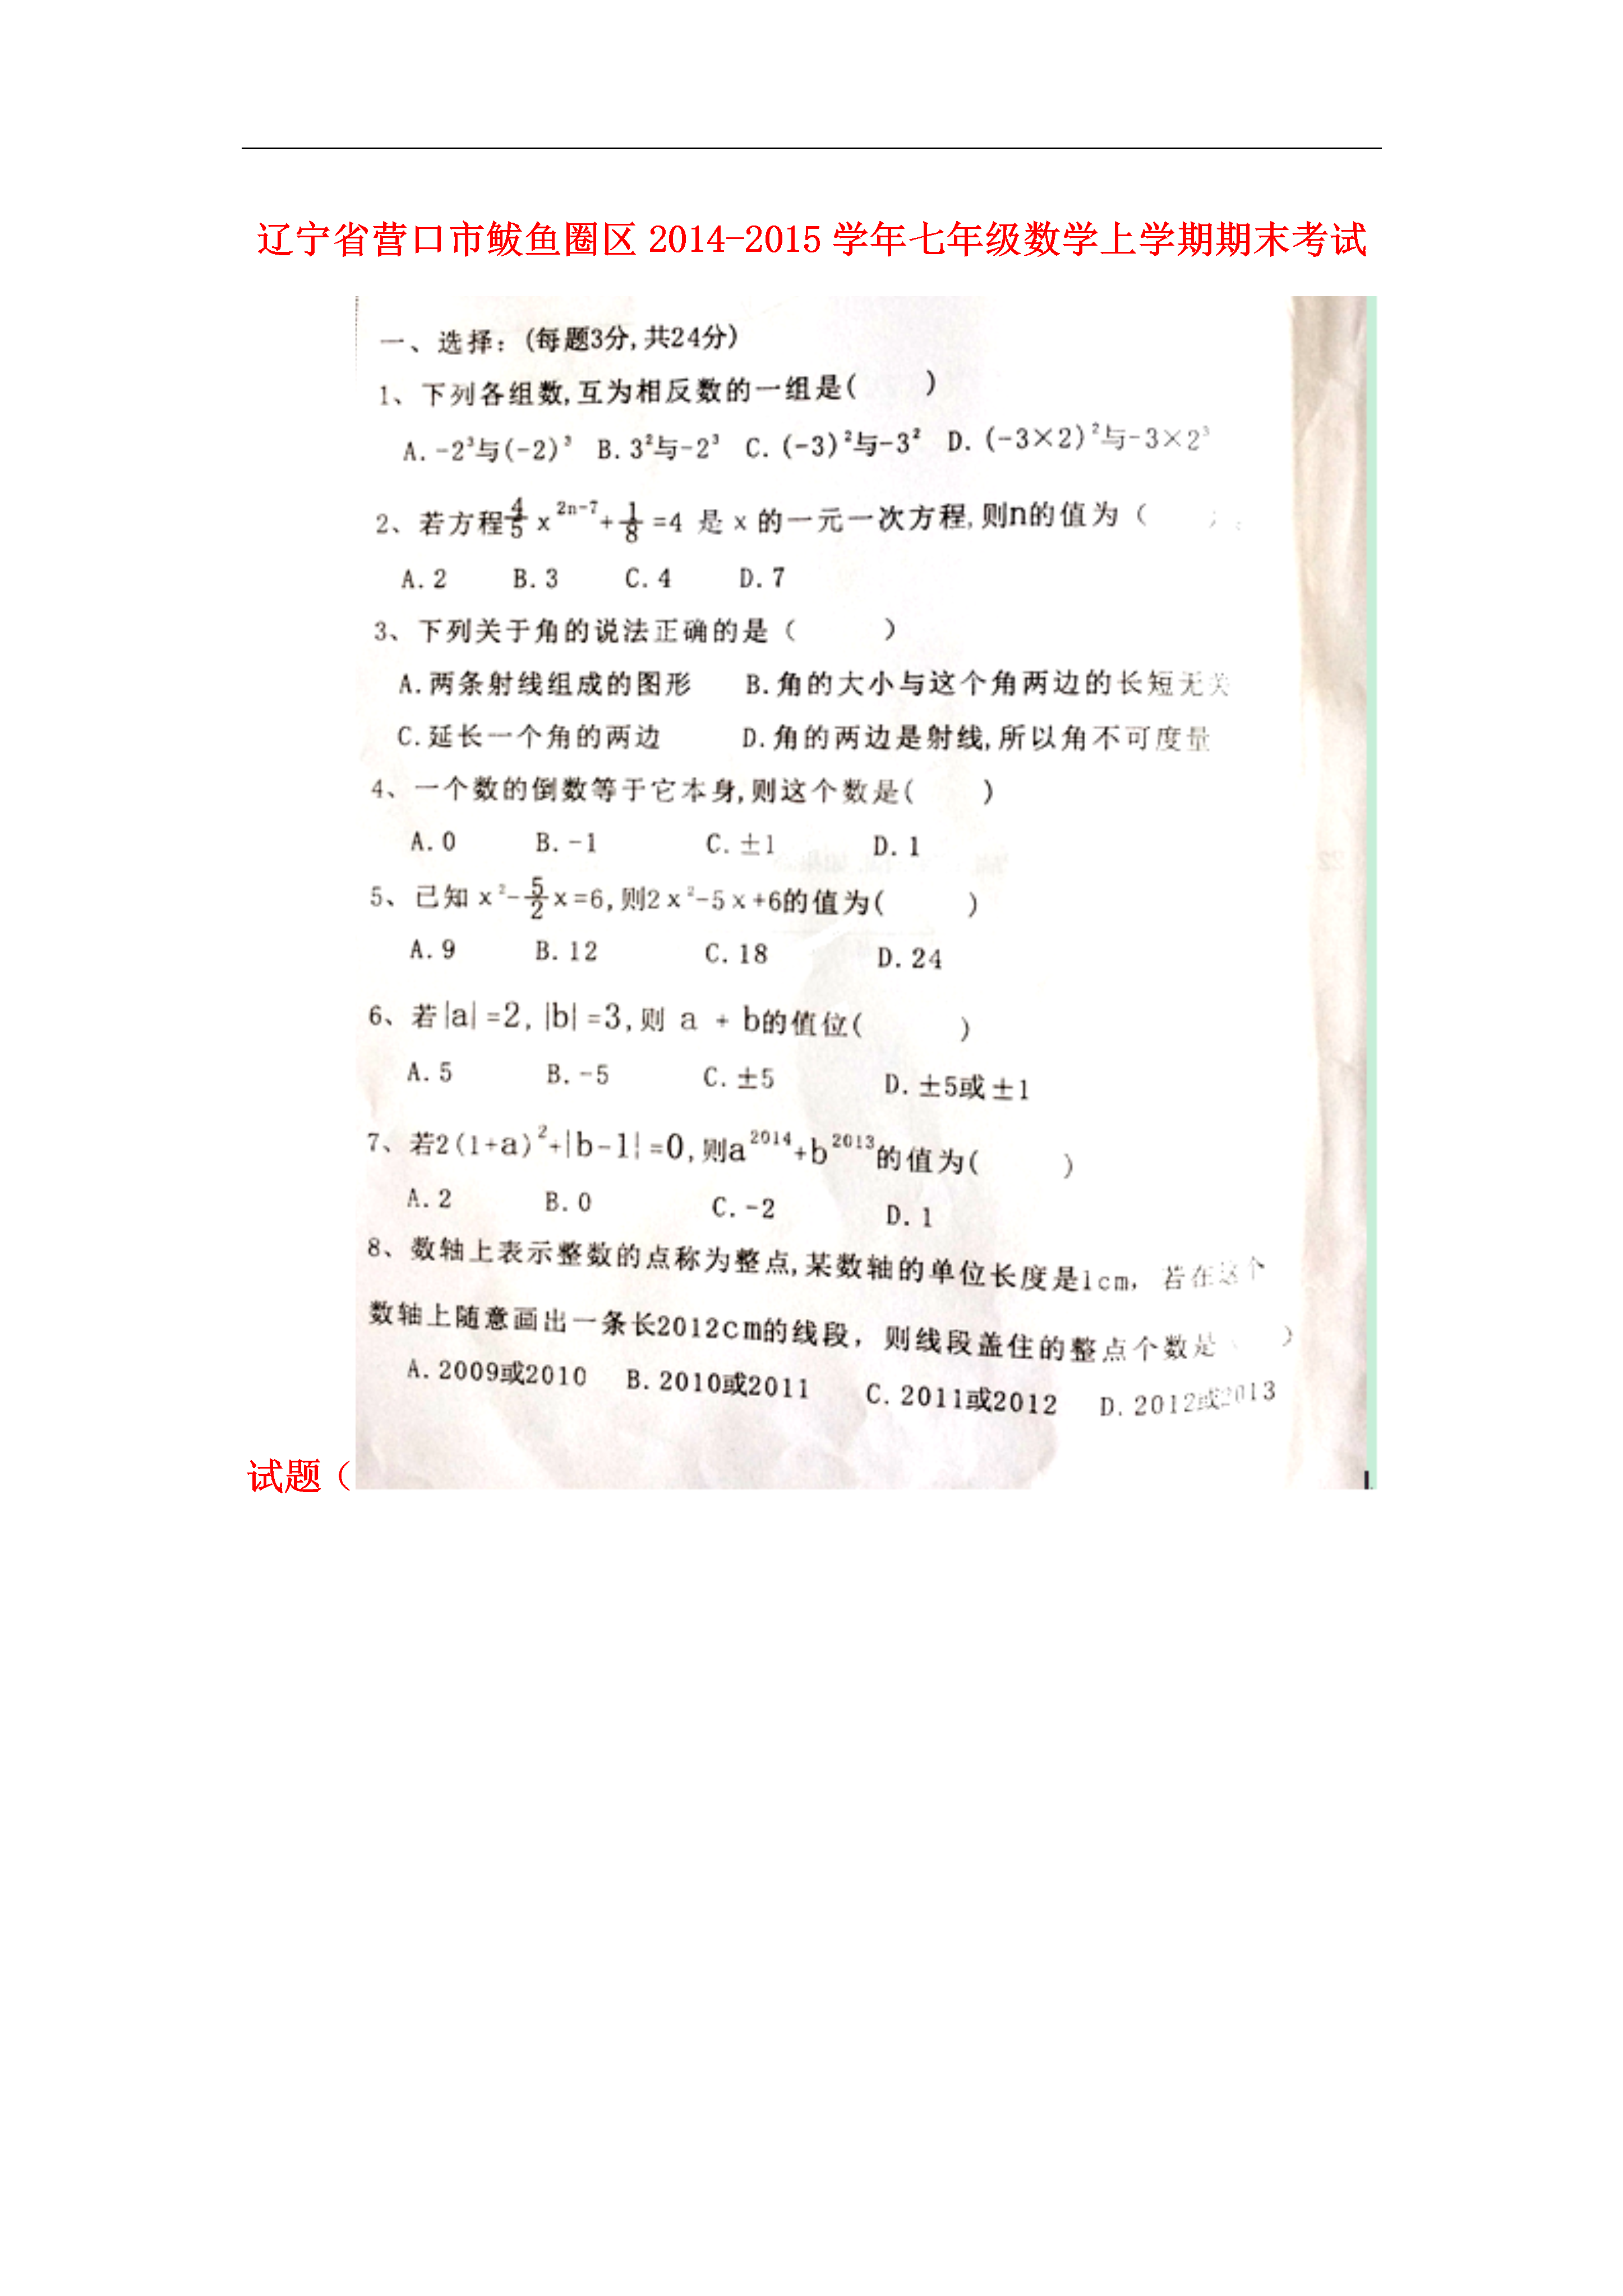 辽宁省营口市鲅鱼圈区 2014-2015 学年七年级数学上学期期末考试
一、选择：(每题3分,共24分)
1、下列各组数,互为相反数的一组是(　　)
A.-2³与(-2)³ B.3²与-2³ C.(-3)²与-3² D.(-3×2)²与-3×2³
2、若方程4/5 x²ⁿ⁻⁷+1/8=4 是 x 的一元一次方程,则n的值为（　　）
A.2 B.3 C.4 D.7
3、下列关于角的说法正确的是（　　）
A.两条射线组成的图形 B.角的大小与这个角两边的长短无关
C.延长一个角的两边 D.角的两边是射线,所以角不可度量
4、一个数的倒数等于它本身,则这个数是(　　)
A.0 B.-1 C.±1 D.1
5、已知 x²-5/2x=6,则2x²-5x+6的值为(　　)
A.9 B.12 C.18 D.24
6、若|a|=2,|b|=3,则 a + b的值位(　　)
A.5 B.-5 C.±5 D.±5或±1
7、若2(1+a)²+|b-1|=0,则a²⁰¹⁴+b²⁰¹³的值为(　　)
A.2 B.0 C.-2 D.1
8、数轴上表示整数的点称为整点,某数轴的单位长度是1cm，若在这个
数轴上随意画出一条长2012cm的线段，则线段盖住的整点个数是（　　）
A.2009或2010 B.2010或2011 C.2011或2012 D.2012或2013
试题（